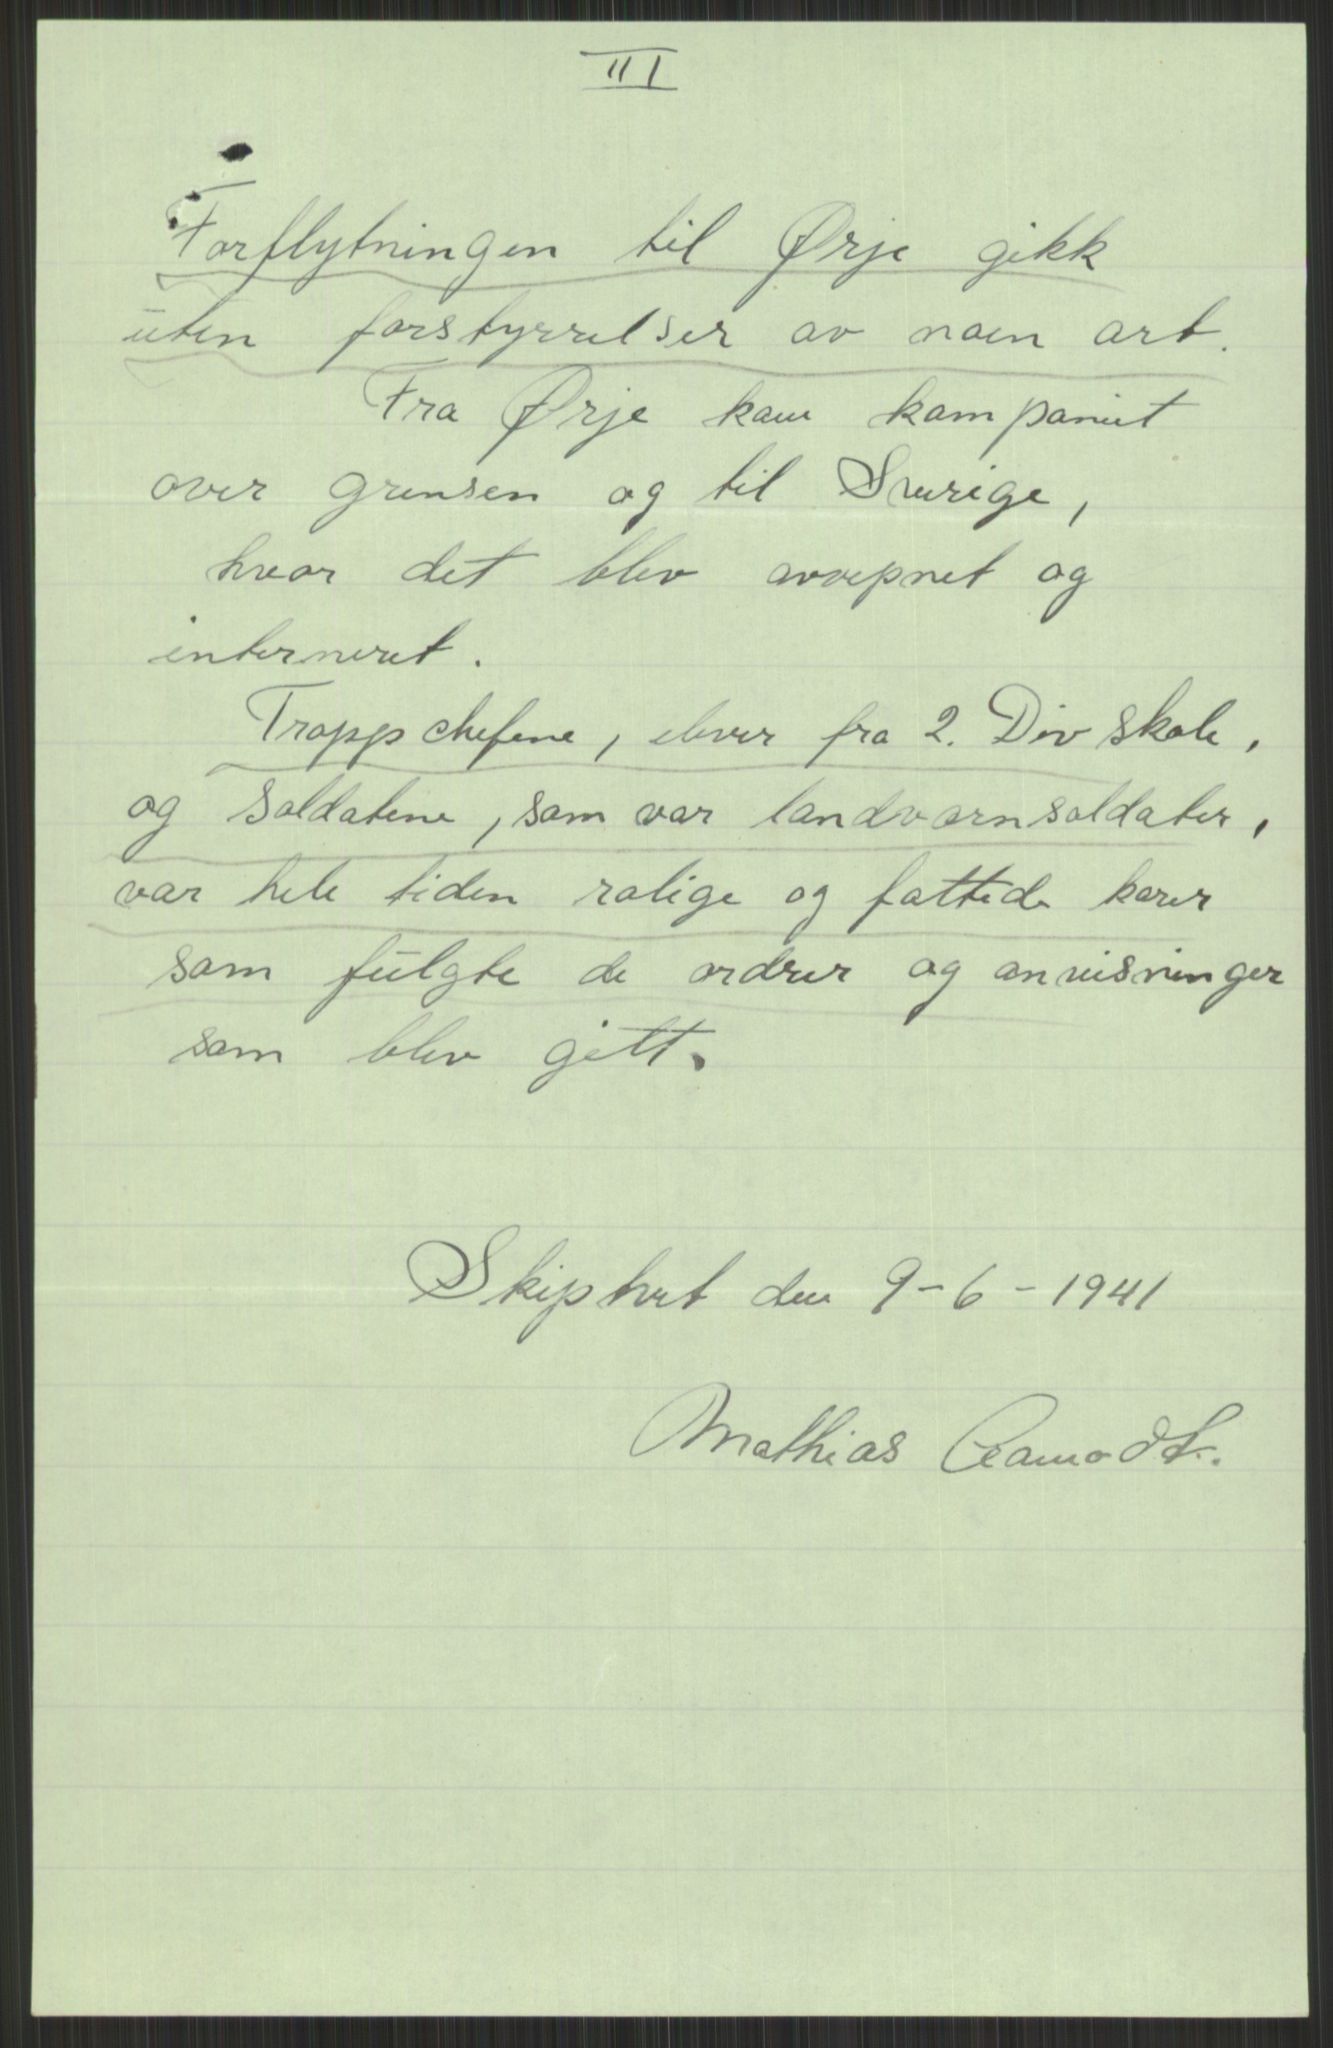 III
Forflytningen til Ørje gikk
uten forstyrrelser av noen art.
Fra Ørje kom kompaniet
over grensen og til Sverige,
hvor det blev avvepnet og
interneret.
Troppschefene, elever fra 2. Div skole,
og soldatene, som var landvernsoldater,
var hele tiden rolige og fattede karer
som fulgte de ordrer og anvisninger
som blev gitt.
Skiptvet den 9-6-1941
Mathias Aamodt.